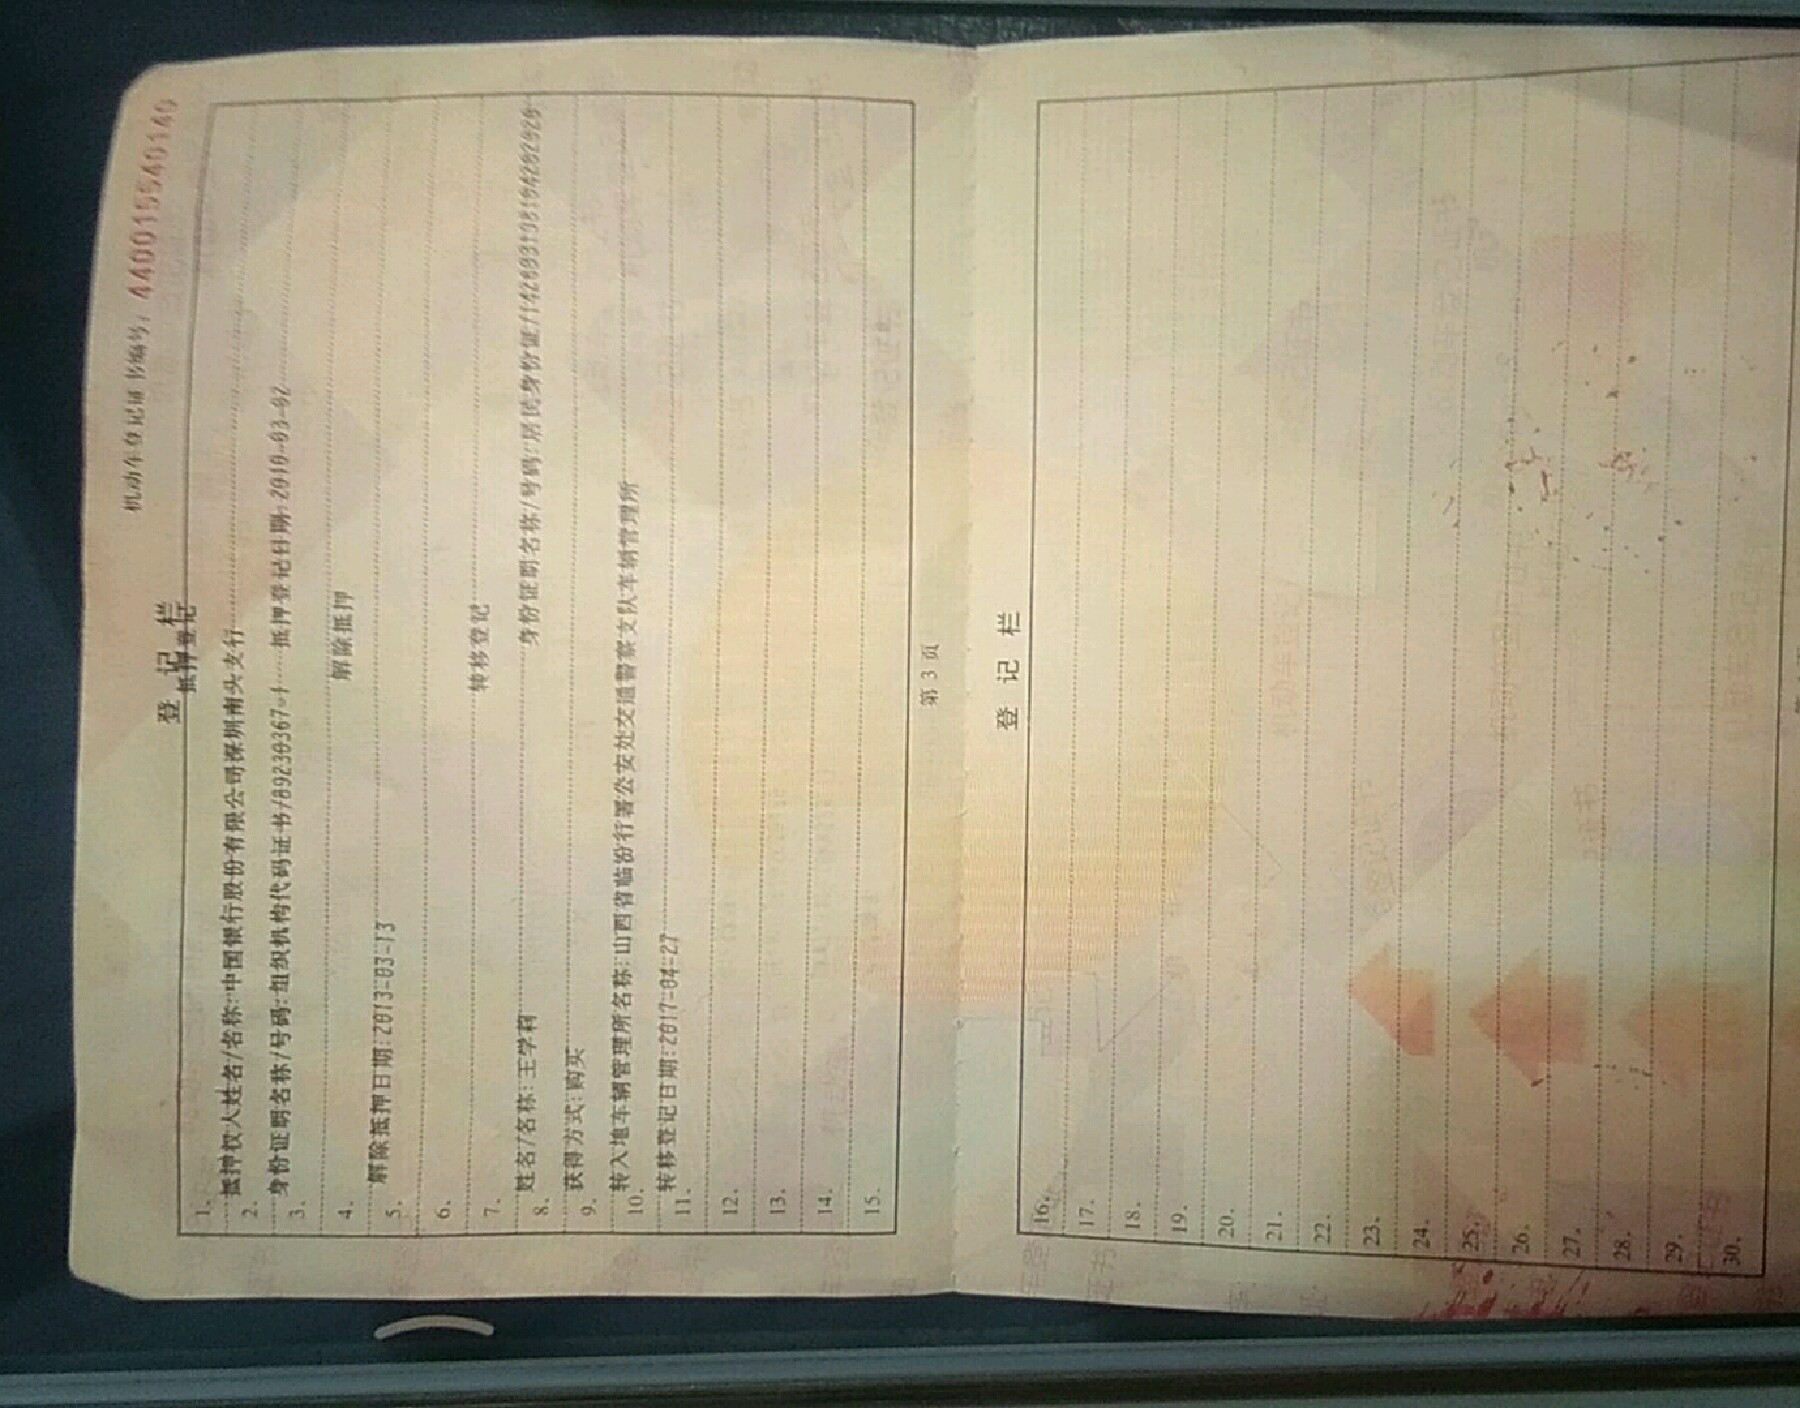 机动车登记证书编号：440015540140
登 记 栏
抵押登记
1.
抵押权人姓名/名称:中国银行股份有限公司深圳南头支行
2.
身份证明名称/号码:组织机构代码证书/89230367-1 抵押登记日期:2010-03-02
3.
解除抵押
4.
解除抵押日期:2013-03-13
5.
6.
转移登记
7.
姓名/名称:王学莉 身份证明名称/号码:居民身份证/
8.
获得方式:购买
9.
转入地车辆管理所名称:山西省临汾行署公安处交通警察支队车辆管理所
10.
转移登记日期:2017-04-27
11.
12.
13.
14.
15.
第 3 页
登 记 栏
16.
17.
18.
19.
20.
21.
22.
23.
24.
25.
26.
27.
28.
29.
30.